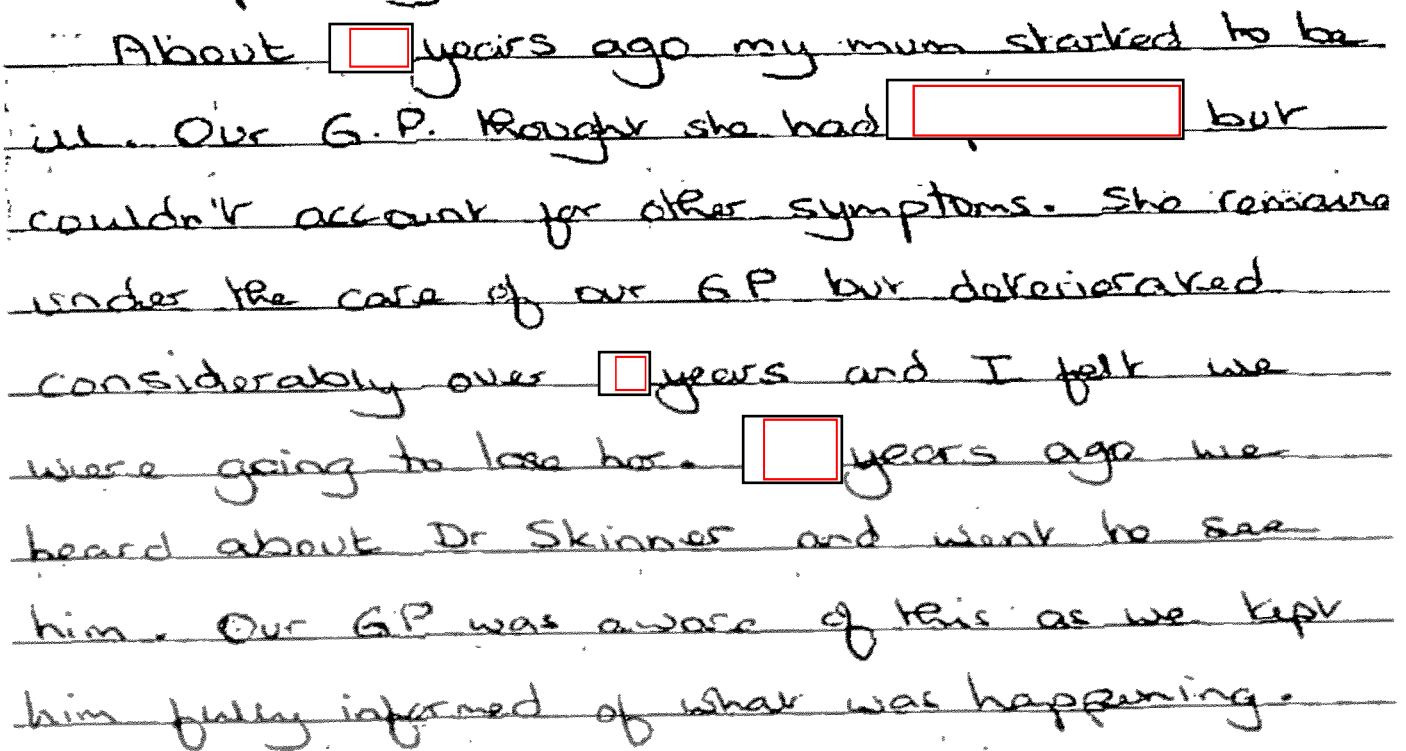 About years ago my mum started to be
ill. Our G.P. thought she had but
couldn't account for other symptoms. She remains
under the care of our GP but deteriorated
considerably over years and I felt we
were going to lose her. years ago we
heard about Dr Skinner and went to see
him. Our GP was aware of this as we kept
him fully informed of what was happening.